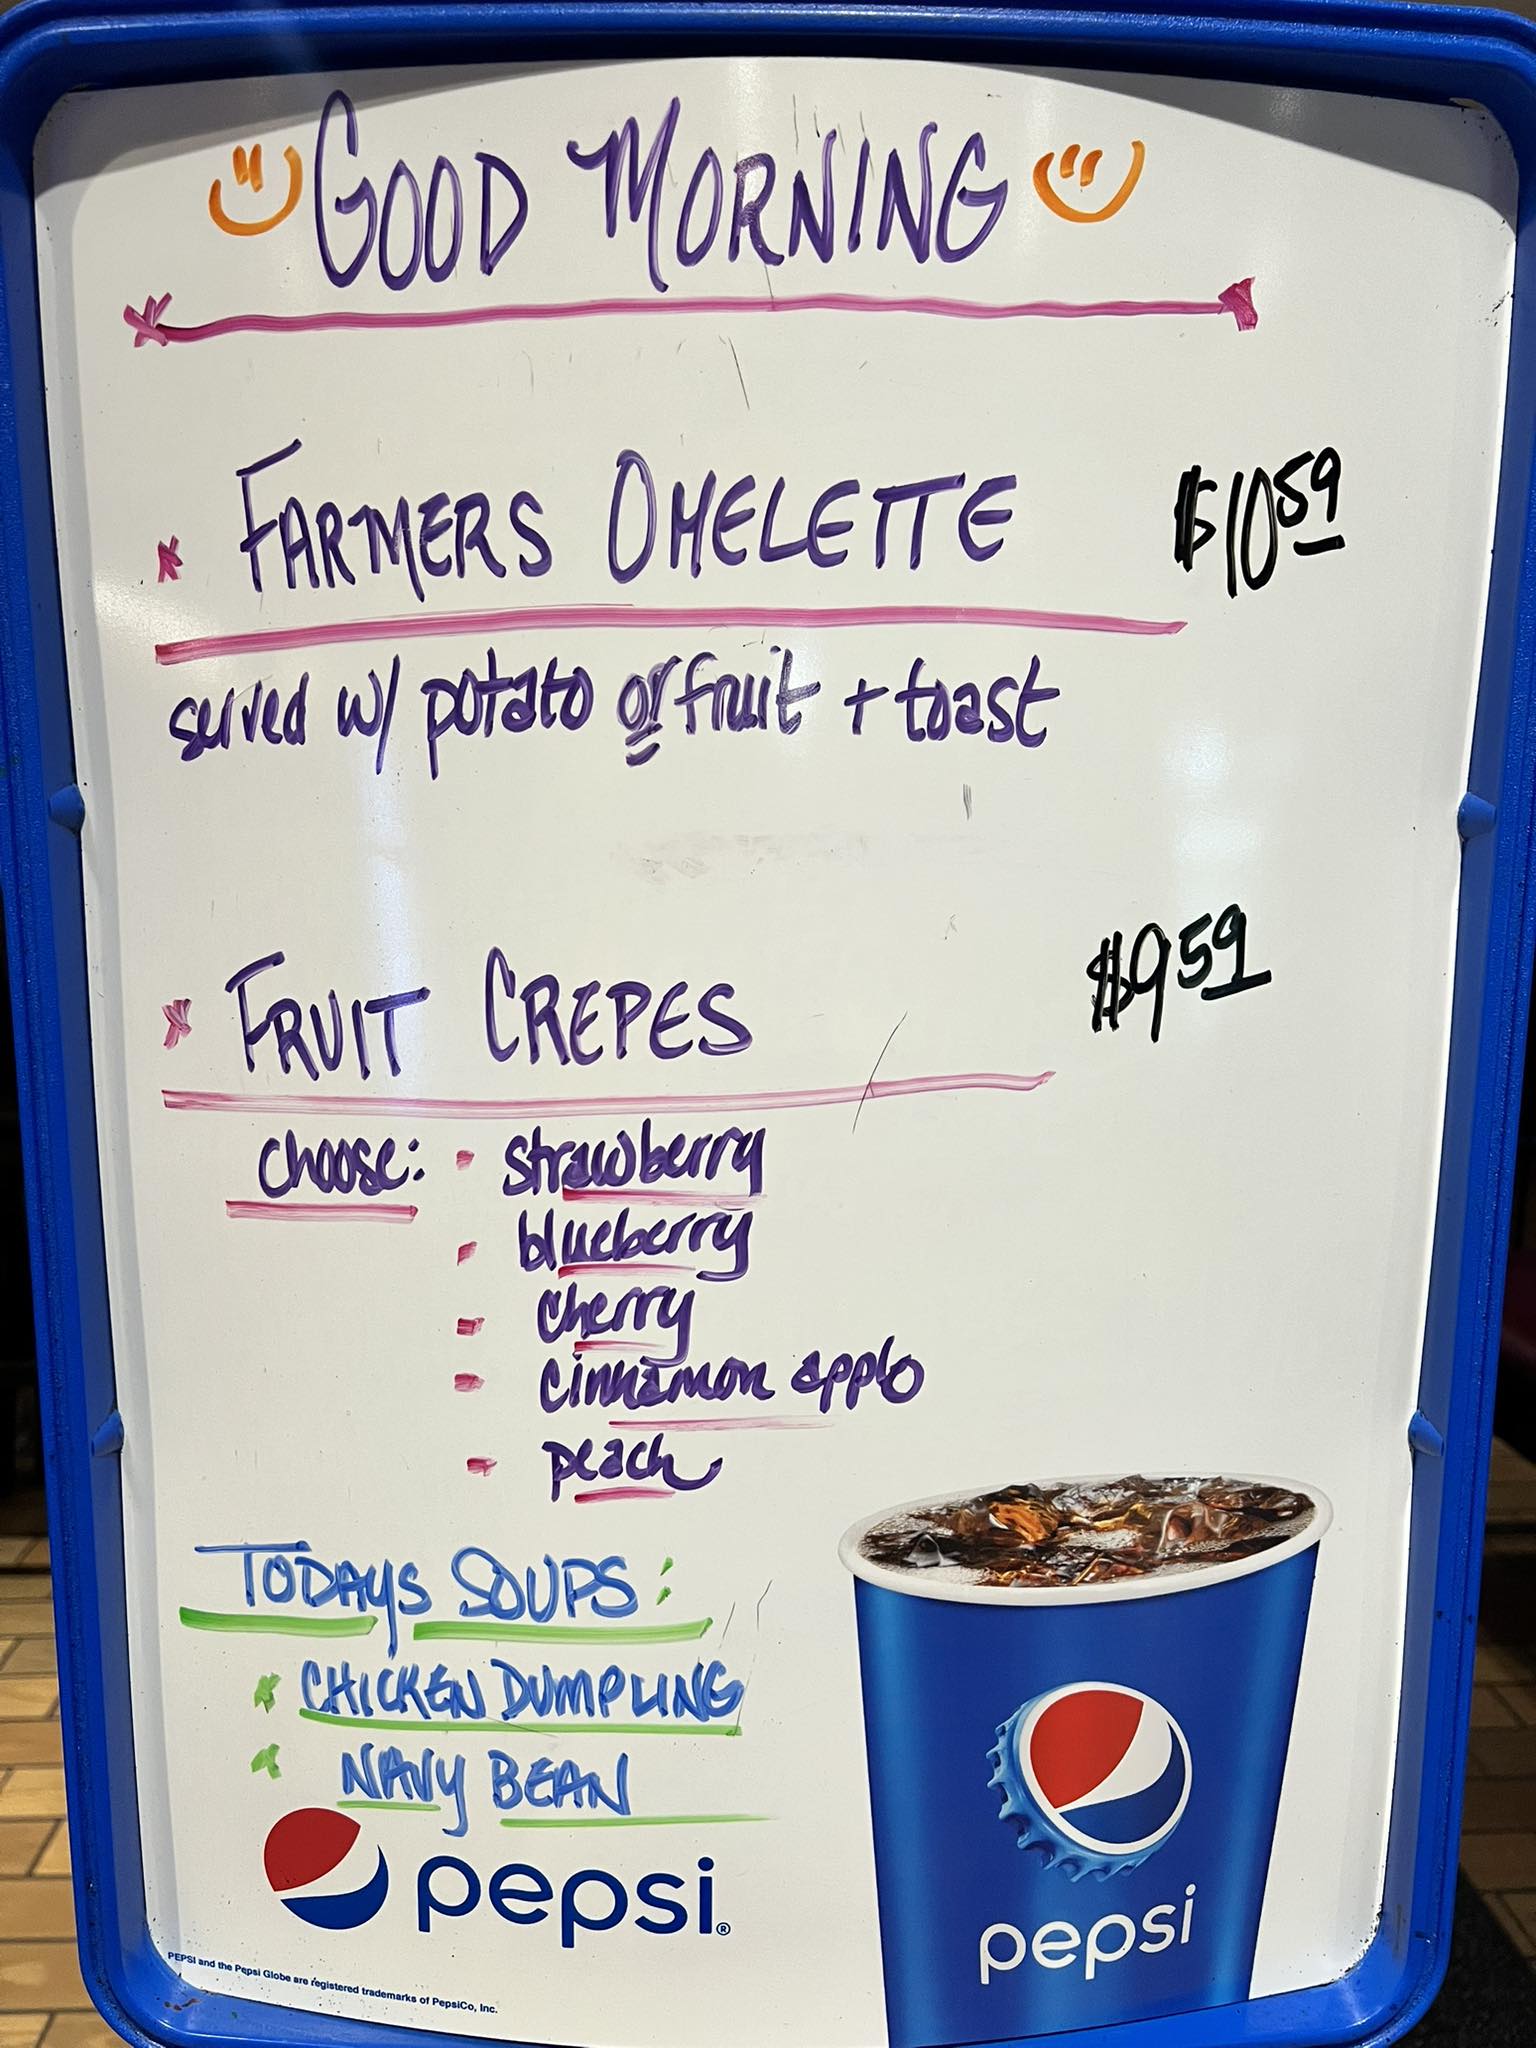 GOOD MORNING
* FARMERS OMELETTE $10.59
served w/ potato or fruit + toast
* FRUIT CREPES $9.59
choose: • strawberry
• blueberry
• cherry
• cinnamon apple
• peach
TODAYS SOUPS:
* CHICKEN DUMPLING
* NAVY BEAN
pepsi®
PEPSI and the Pepsi Globe are registered trademarks of PepsiCo, Inc.
pepsi